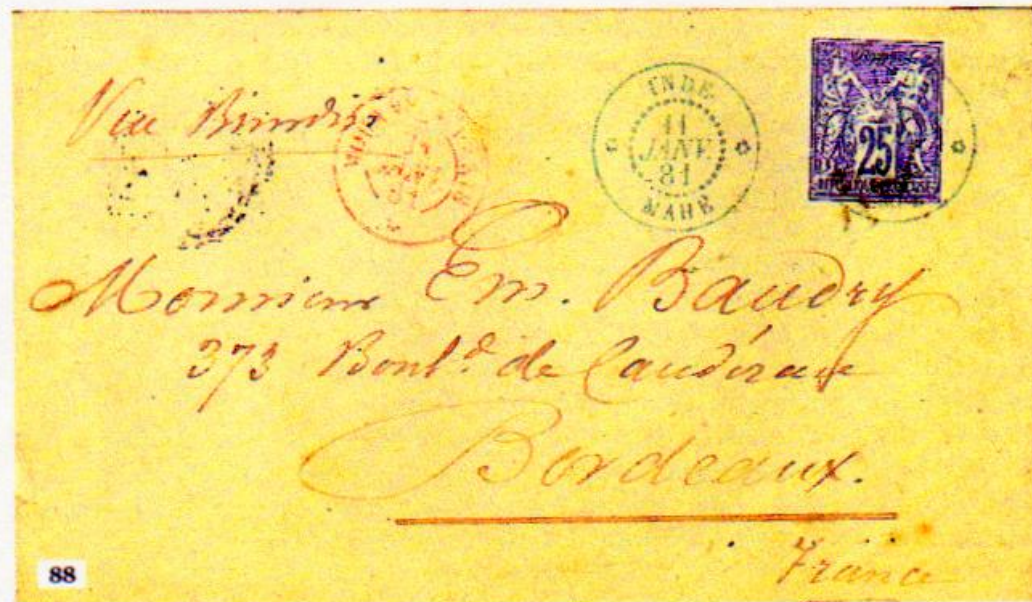 Via Brindisi
INDE
11
JANV.
81
MAHE
25
Monsieur Em. Baudry
373 Boul.d de Caudéran
Bordeaux.
France
88